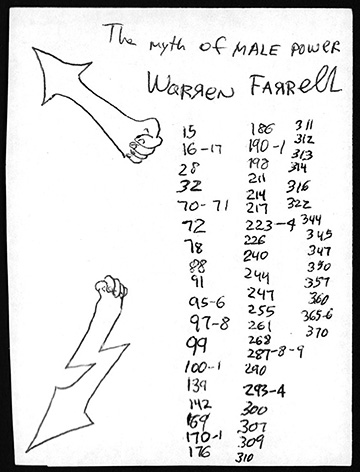 The myth of MALE POWER
WARREN FARRELL
15
16-17
28
32
70-71
72
78
88
91
95-6
97-8
99
100-1
139
142
169
170-1
176
186
190-1
198
211
214
217
223-4
226
240
244
247
255
261
268
287-8-9
290
293-4
300
307
309
310
311
312
313
314
316
322
344
345
347
350
357
360
365-6
370